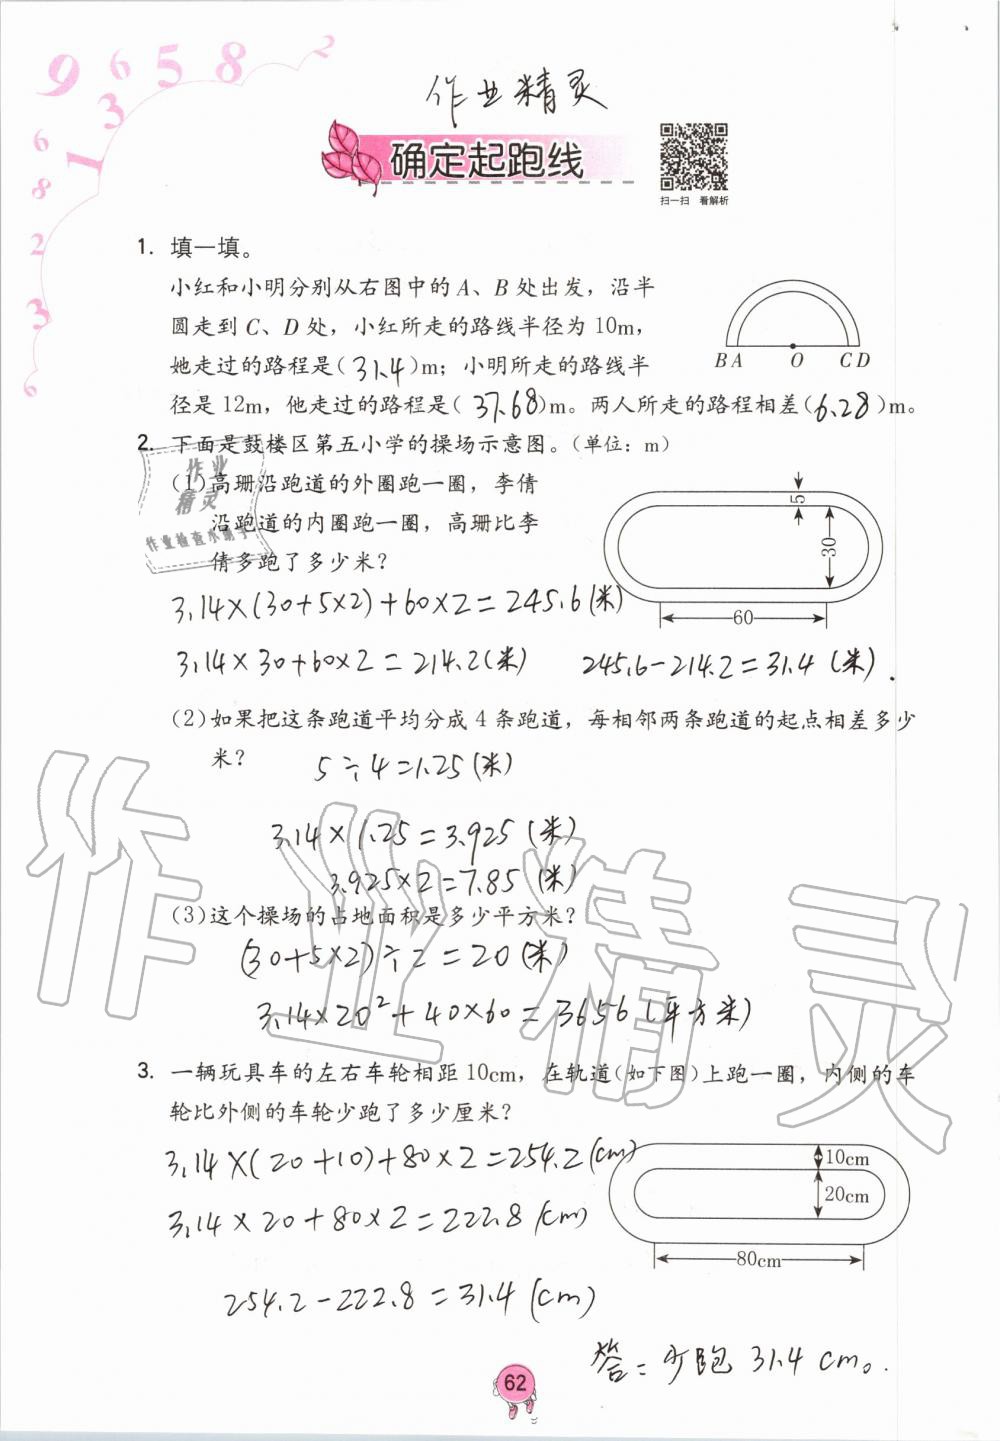 9 6 5 8 2
3
1
6
8
2
3
6
作业精灵
确定起跑线
扫一扫 看解析
1. 填一填。
小红和小明分别从右图中的 A、B 处出发，沿半
圆走到 C、D 处，小红所走的路线半径为 10m，
她走过的路程是(31.4)m；小明所走的路线半
径是 12m，他走过的路程是(37.68)m。两人所走的路程相差(6.28)m。
B A O C D
2. 下面是鼓楼区第五小学的操场示意图。（单位：m）
(1)高珊沿跑道的外圈跑一圈，李倩
沿跑道的内圈跑一圈，高珊比李
倩多跑了多少米？
5
30
60
作业
精灵
作业检查小助手
3.14×(30+5×2)+60×2=245.6(米)
3.14×30+60×2=214.2(米) 245.6-214.2=31.4(米).
(2)如果把这条跑道平均分成 4 条跑道，每相邻两条跑道的起点相差多少
米？ 5÷4=1.25(米)
3.14×1.25=3.925(米)
3.925×2=7.85(米)
(3)这个操场的占地面积是多少平方米？
(30+5×2)÷2=20(米)
3.14×20²+40×60=3656(平方米)
作业精灵
3. 一辆玩具车的左右车轮相距 10cm，在轨道（如下图）上跑一圈，内侧的车
轮比外侧的车轮少跑了多少厘米？
3.14×(20+10)+80×2=254.2(cm)
3.14×20+80×2=222.8(cm)
254.2-222.8=31.4(cm)
10cm
20cm
80cm
答：少跑 31.4 cm。
62